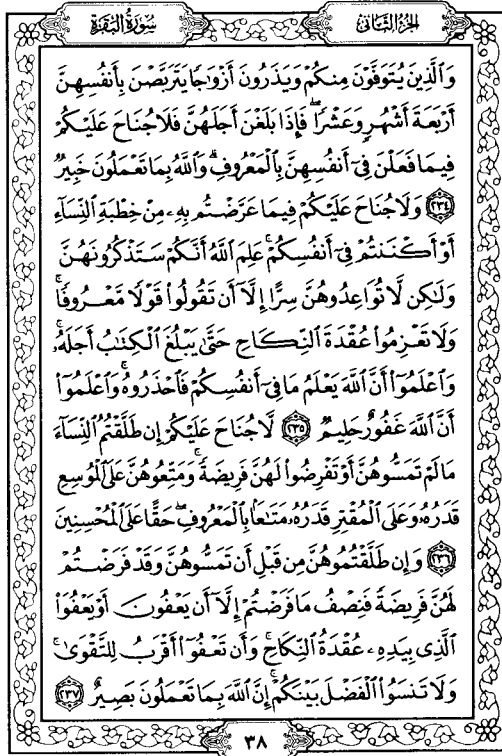 سُورَةُ البَقَرَةِ
الجُزْءُ الثَّانِي
وَٱلَّذِينَ يُتَوَفَّوْنَ مِنكُمْ وَيَذَرُونَ أَزْوَٰجًا يَتَرَبَّصْنَ بِأَنفُسِهِنَّ
أَرْبَعَةَ أَشْهُرٍ وَعَشْرًا ۖ فَإِذَا بَلَغْنَ أَجَلَهُنَّ فَلَا جُنَاحَ عَلَيْكُمْ
فِيمَا فَعَلْنَ فِىٓ أَنفُسِهِنَّ بِٱلْمَعْرُوفِ ۗ وَٱللَّهُ بِمَا تَعْمَلُونَ خَبِيرٌ
٢٣٤ وَلَا جُنَاحَ عَلَيْكُمْ فِيمَا عَرَّضْتُم بِهِۦ مِنْ خِطْبَةِ ٱلنِّسَآءِ
أَوْ أَكْنَنتُمْ فِىٓ أَنفُسِكُمْ ۚ عَلِمَ ٱللَّهُ أَنَّكُمْ سَتَذْكُرُونَهُنَّ
وَلَٰكِن لَّا تُوَاعِدُوهُنَّ سِرًّا إِلَّآ أَن تَقُولُوا۟ قَوْلًا مَّعْرُوفًا ۚ
وَلَا تَعْزِمُوا۟ عُقْدَةَ ٱلنِّكَاحِ حَتَّىٰ يَبْلُغَ ٱلْكِتَٰبُ أَجَلَهُۥ ۚ
وَٱعْلَمُوٓا۟ أَنَّ ٱللَّهَ يَعْلَمُ مَا فِىٓ أَنفُسِكُمْ فَٱحْذَرُوهُ ۚ وَٱعْلَمُوٓا۟
أَنَّ ٱللَّهَ غَفُورٌ حَلِيمٌ ٢٣٥ لَّا جُنَاحَ عَلَيْكُمْ إِن طَلَّقْتُمُ ٱلنِّسَآءَ
مَا لَمْ تَمَسُّوهُنَّ أَوْ تَفْرِضُوا۟ لَهُنَّ فَرِيضَةً ۚ وَمَتِّعُوهُنَّ عَلَى ٱلْمُوسِعِ
قَدَرُهُۥ وَعَلَى ٱلْمُقْتِرِ قَدَرُهُۥ مَتَٰعًۢا بِٱلْمَعْرُوفِ ۖ حَقًّا عَلَى ٱلْمُحْسِنِينَ
٢٣٦ وَإِن طَلَّقْتُمُوهُنَّ مِن قَبْلِ أَن تَمَسُّوهُنَّ وَقَدْ فَرَضْتُمْ
لَهُنَّ فَرِيضَةً فَنِصْفُ مَا فَرَضْتُمْ إِلَّآ أَن يَعْفُونَ أَوْ يَعْفُوَا۟
ٱلَّذِى بِيَدِهِۦ عُقْدَةُ ٱلنِّكَاحِ ۚ وَأَن تَعْفُوٓا۟ أَقْرَبُ لِلتَّقْوَىٰ ۚ
وَلَا تَنسَوُا۟ ٱلْفَضْلَ بَيْنَكُمْ ۚ إِنَّ ٱللَّهَ بِمَا تَعْمَلُونَ بَصِيرٌ ٢٣٧
٣٨